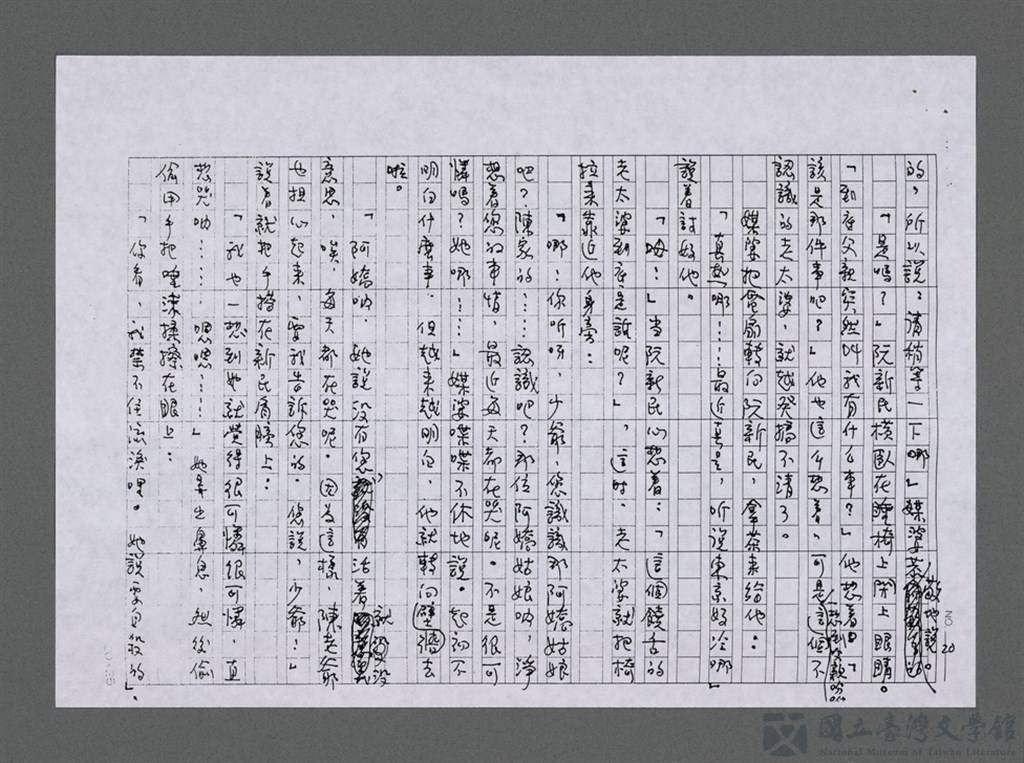 的，所以說：清稍等一下哪」媒婆恭敬地說。
「是嗎？」阮新民橫臥在睡椅上閉上眼睛。
「到底父親突然叫我有什么事？」他想着。「
該是那件事吧？」他也這么想着，可是想到這個不
認識的老太婆，就越發搞不清了。
媒婆把電扇轉向阮新民，拿茶来給他：
「真熱哪！……最近真是，听说東京好冷哪」
說着討好他。
「呣！」当阮新民心想着：「這個饒舌的
老太婆到底是誰呢？」，這时，老太婆就把椅
拉来靠近他身旁：
「哪！你听呀，少爺，您識識那阿嬌姑娘
吧？陳家的……認識吧？那位阿嬌姑娘吶，淨
想着您的事情，最近每天都在哭呢。不是很可
憐嗎？她哪！……」媒婆喋喋不休地說。起初不
明白什麼事，但越来越明白，他就轉向壁去
啦。
「阿嬌吶，她說没有您活着就没
意思，唉，每天都在哭呢。因为這樣，陳老爺
也担心起来，要我告訴您的。您說，少爺！」
說着就把手擱在新民肩膀上：
「我也一想到她就覺得很可憐很可憐，直
想哭吶……嗯嗯……」她弄出鼻息，然後偷
偷用手把唾沫揉擦在眼上：
「你看，我禁不住流淚哩。她說要自殺的」。
NO 20
國立臺灣文學館
National Museum of Taiwan Literature